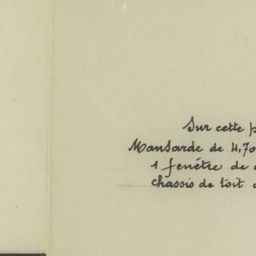 Sur cette
Mansarde de 4,70
1 fenêtre de
chassis de toit